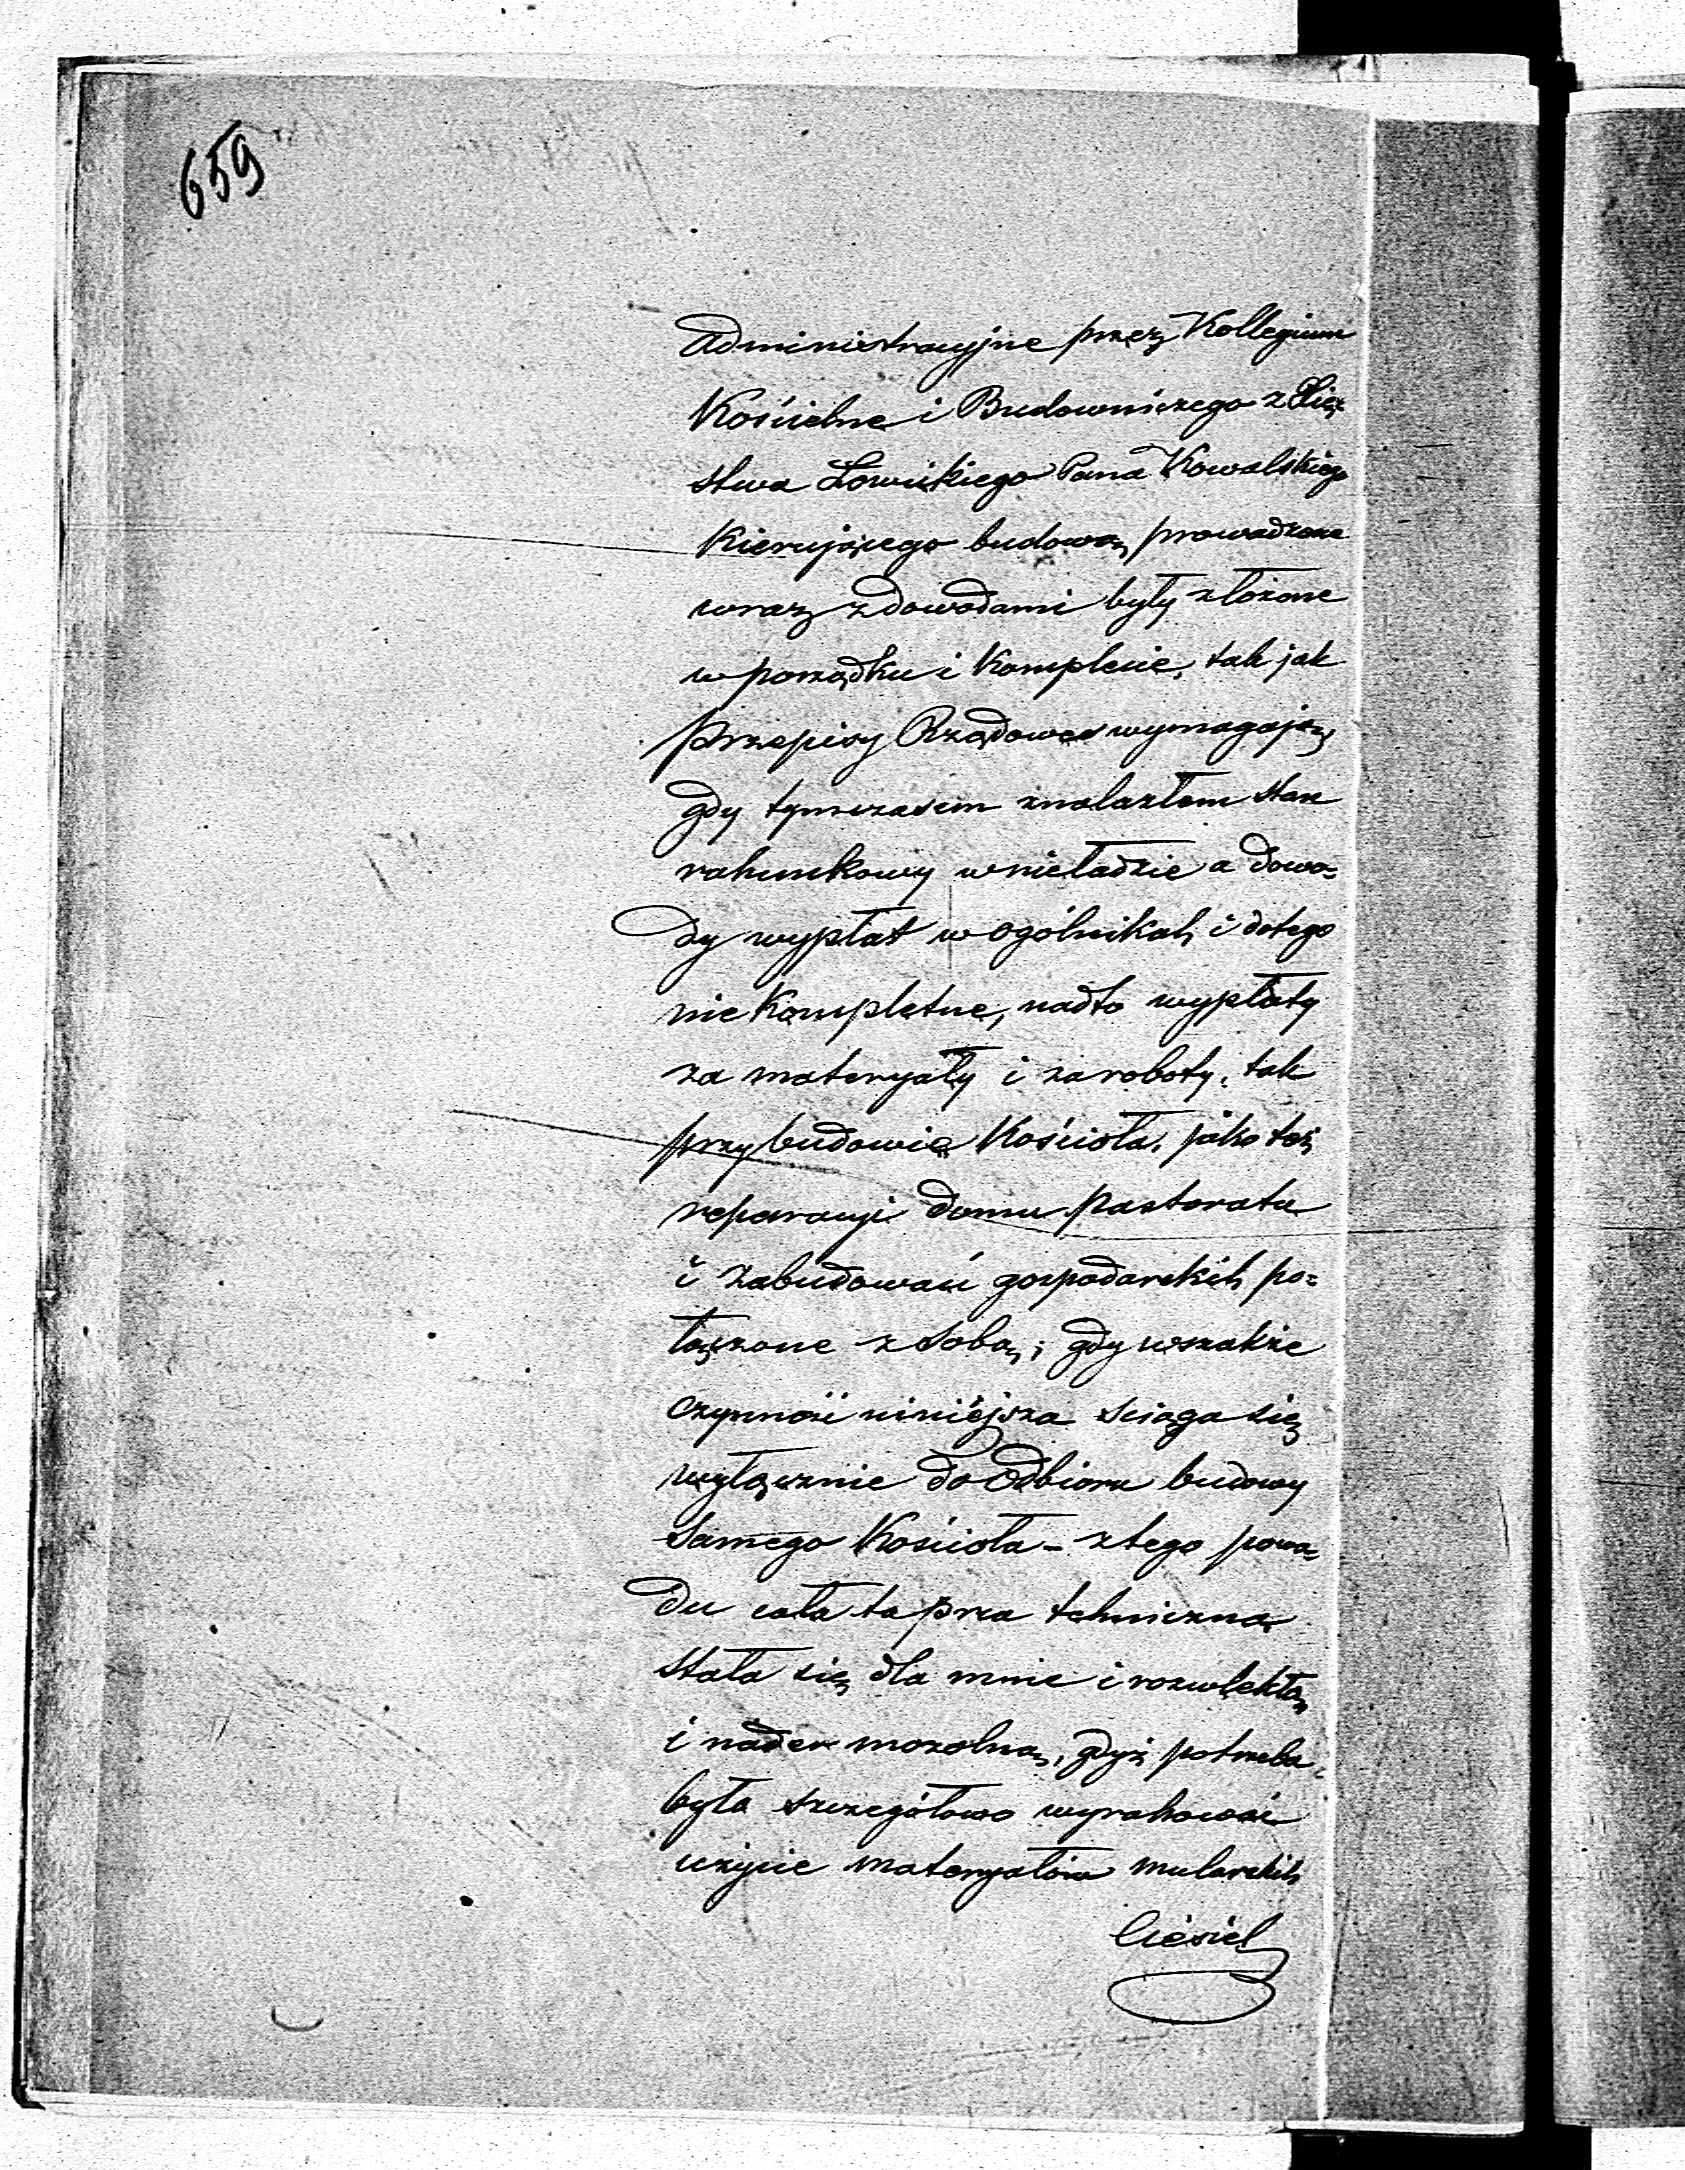 659
Administracyjne przez Kollegium
Kościelne i Budowniczego z Xię-
stwa Łowickiego Pana Kowalskiego
Kierującego budową prowadzone
wraz z dowodami były złożone
w porządku i Komplecie, tak jak
przepisy Rządowe wymagają,
gdy tymczasem znalazłem stan
rahunkowy w nieładzie a dowo-
dy wypłat w ogólnikah i do tego
nie Kompletne, nadto wypłaty
za materyały i za roboty, tak
przy budowie Kościoła, jako też
reparacyi domu pastoratu
i Zabudowań gospodarskih po-
łączone z sobą; gdy wszakże
czynność niniejsza sciąga się
wyłącznie do Odbioru budowy
Samego Kościoła - z tego powo-
du cała ta praca tehniczna
stała się dla mnie i rozwlekłą
i nader mozolną, gdyż potrzeba
było szczegółowo wyrahować
użycie materyałów mularskih
Ciesiel